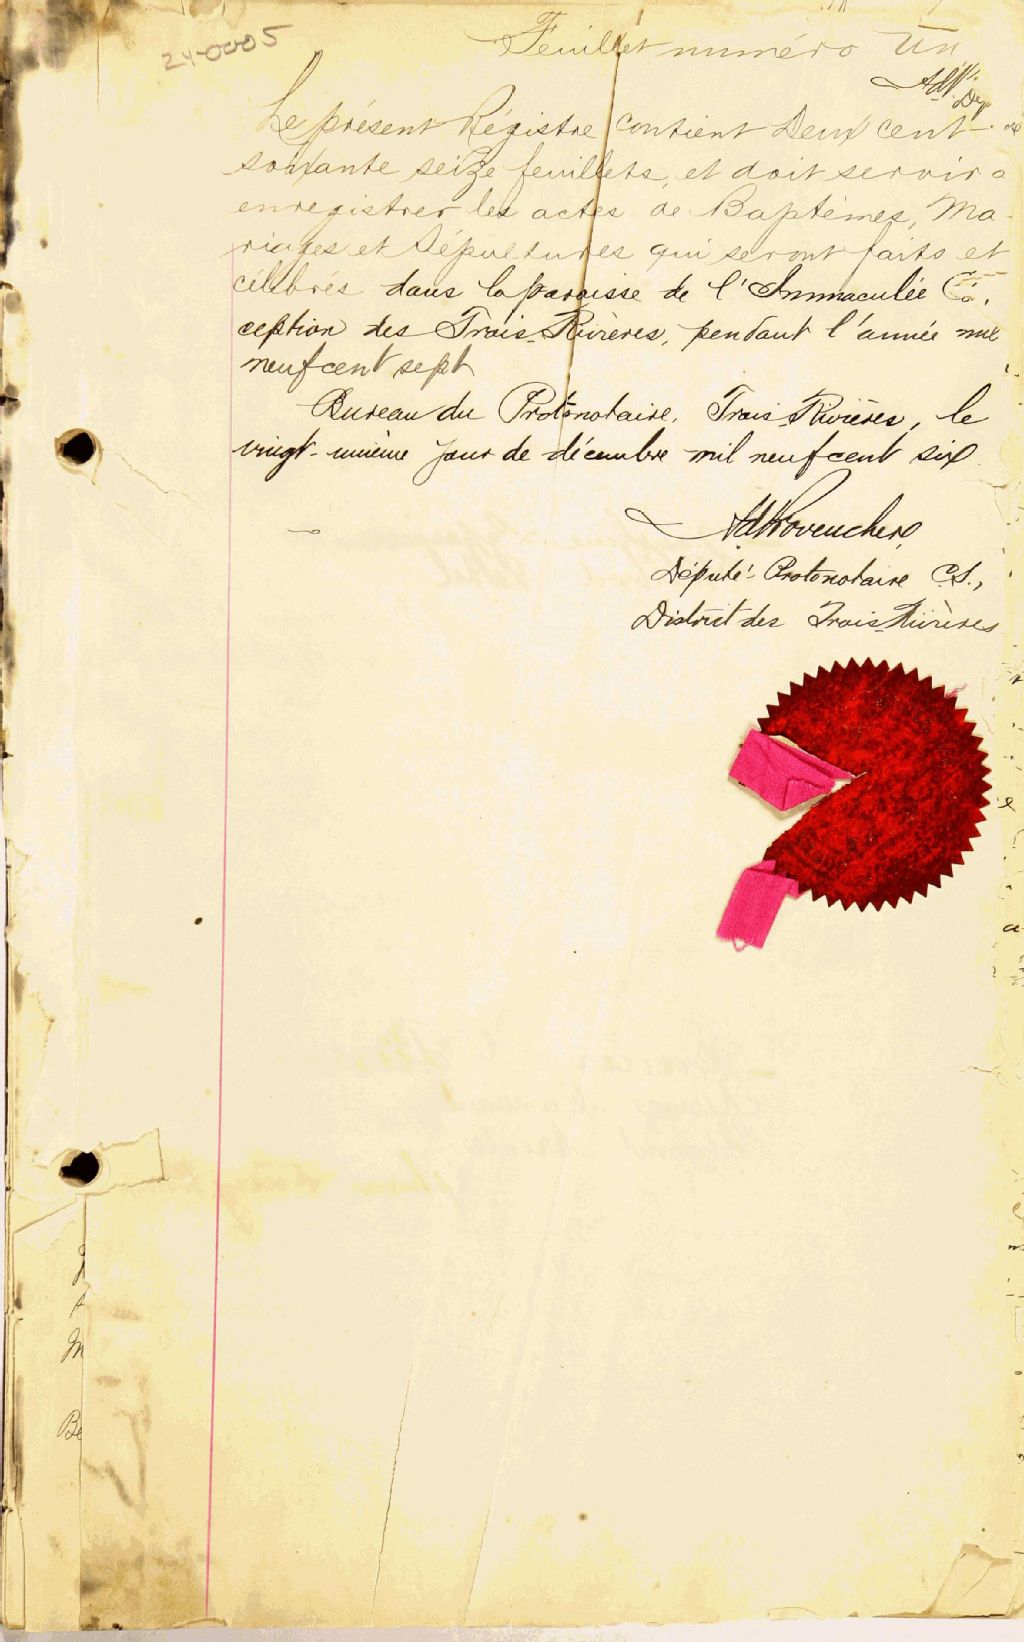 24-0005
Feuillet numéro Un
Le présent Régistre contient Deux cent
soixante seize feuillets, et doit servir a
enregistrer les actes de Baptêmes, Ma-
riages et Sépultures qui seront faits et
célébrés dans la paroisse de l'Immaculée Con-
ception des Trois-Rivières, pendant l'année mil
neuf cent sept
Bureau du Protonotaire, Trois-Rivières, le
vingt-unième jour de décembre mil neuf cent six
Ad Provencher,
Député-Protonotaire C.S.,
District des Trois-Rivières
M
Be